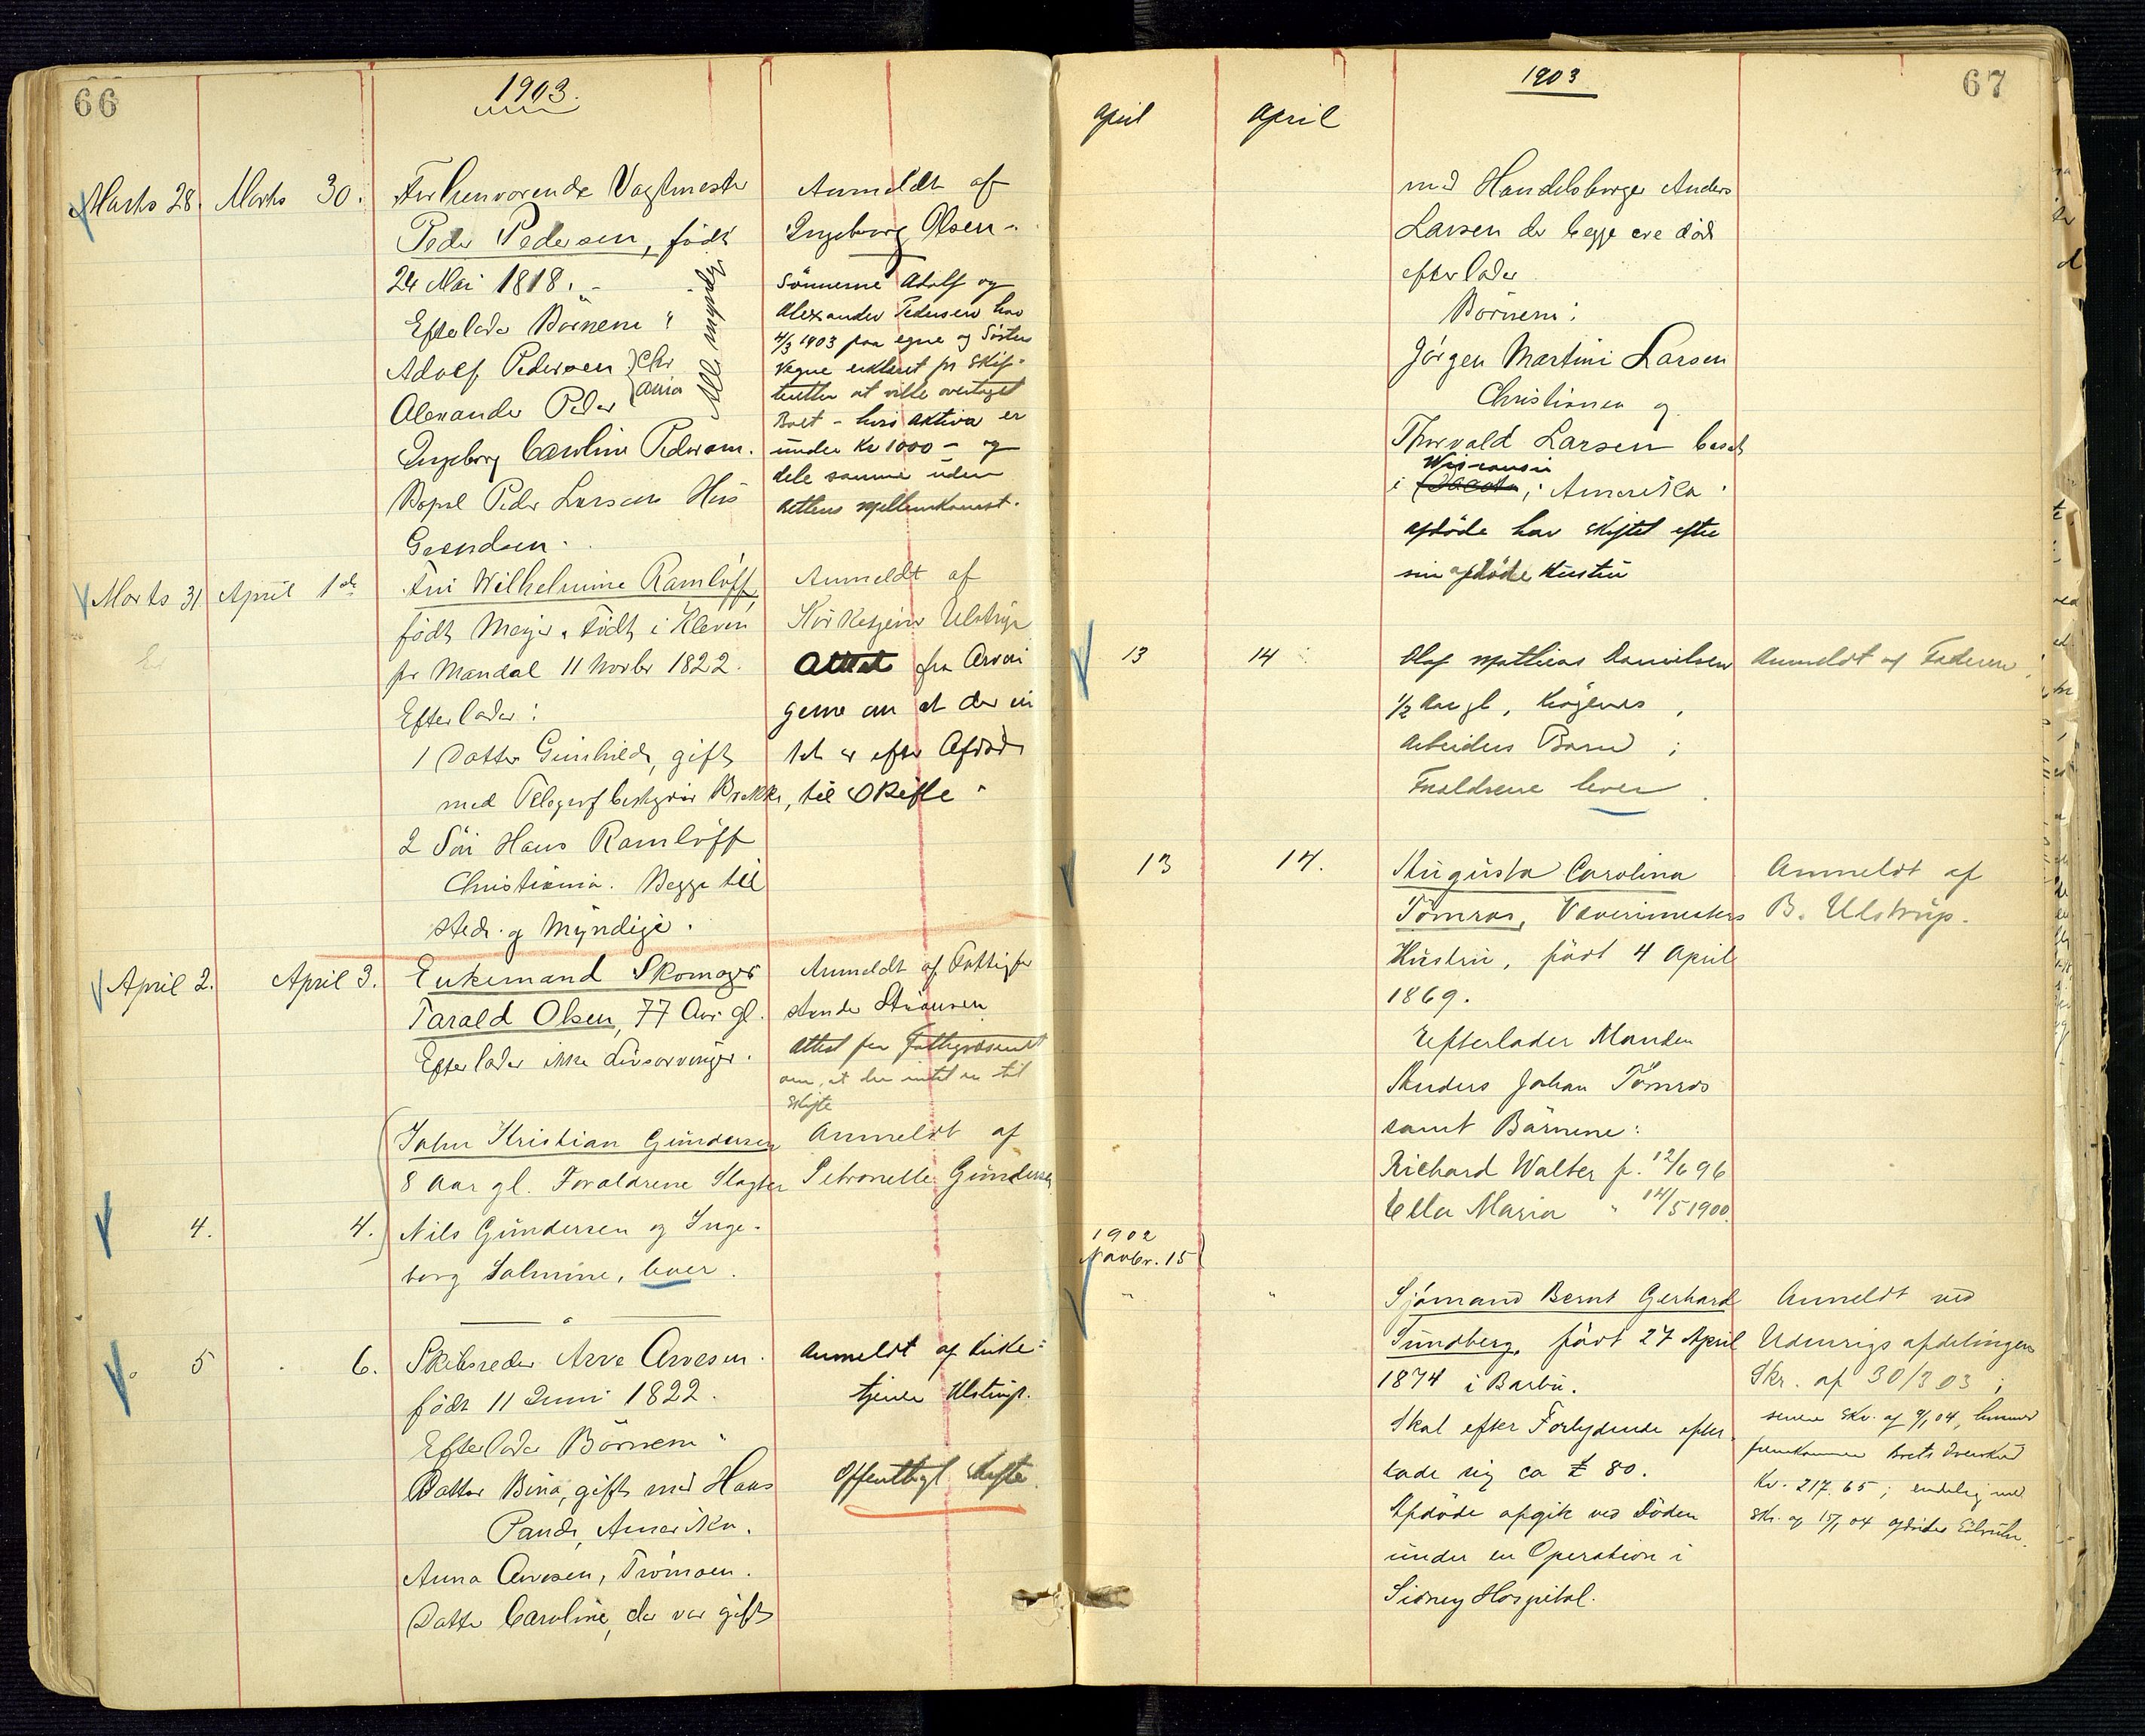 66
1903.
Marts 28. Marts 30.
Forhenværende Vagtmester
Peder Pedersen, født
24 Mai 1818.
Efterlader Børnene:
Adolf Pedersen } Chr
Alexander Peder } ania
Alle myndige
Ingeborg Caroline Pedersen.
Bopæl Peder Larsens Hus
Anmeldt af
Ingeborg Olsen.
Sønnerne Adolf og
Alexander Pedersen har
4/3 1903 paa egne og Søsters
Vegne erklæret for Skif-
teretten at ville overtaget
Boet - hvis aktiva er
under Kr 1000 - og
dele samme uden
Rettens mellemkomst.
Marts 31 April 1ste
Fru Wilhelmine Ramløff,
født Meyer. Født i Kleven
pr Mandal 11 Novbr 1822.
Efterlader:
1 Datter Gunhilde, gift
med Telegrafbestyrer Brekke,
2 Søn Hans Ramløff
Christiania. Begge til
stede og Myndige.
Anmeldt af
Kirketjener Ulstrup
Attest fra Arvin
gerne om at der in
tet er efter Afdøde
til Skifte
April 2. April 3.
Enkemand Skomager
Tarald Olsen, 77 Aar gl.
Efterlader ikke Livsarvinger.
Anmeldt af Fattigfor
stander
Attest fra Fattigvæsenet
om, at der intet er til
Skifte
4. 4.
John Kristian Gundersen
8 Aar gl. Forældrene Slagter
Nils Gundersen og Inge-
borg Salmine, lever.
Anmeldt af
Petronelle Gundersen
5 6.
Skibsreder Arve Arvesen.
født 11 Juni 1822.
Efterlader Børnene:
Datter Bina, gift med Hans
Pande, Amerika.
Anna Arvesen, Tromøen.
Datter Caroline, der var gift
Anmeldt af Kirke-
tjener Ulstrup.
Offentligt Skifte.
67
1903
April April
med Handelsborger Anders
Larsen der begge ere død
efterlader
Børnene:
Jørgen Martini Larsen
Christiania og
Thorvald Larsen bosat
Wisconsin
i Amerika.
afdøde har skiftet efter
sin afdøde Hustru
13 14
Olaf Mathias Danielsen
1/2 Aar gl,
Arbeiders Barn;
Forældrene lever
Anmeldt af Faderen.
13 14.
Augusta Carolina
Tömros, Væverimesters
Hustru, født 4 April
1869.
Efterlader Manden
Anders Johan Tömros
samt Børnene:
Richard Walter f. 12/6 96
Ella Maria " 14/5 1900.
Anmeldt af
B. Ulstrup.
1902
Novbr. 15
" "
Sjømand Bernt Gerhard
Sundberg, født 27 April
1874 i Barbu.
Skal efter Forlydende efter
lade sig ca £ 80.
Afdøde afgik ved Døden
under en Operation i
Sidney Hospital.
Anmeldt ved
Udenrigsafdelingens
Skr. af 30/3 03;
senere Skr. af 9/1 04, hvorved
fremkommer Boets Overskud
Kr. 217.65; endelig ved
Skr. af 15/1 04